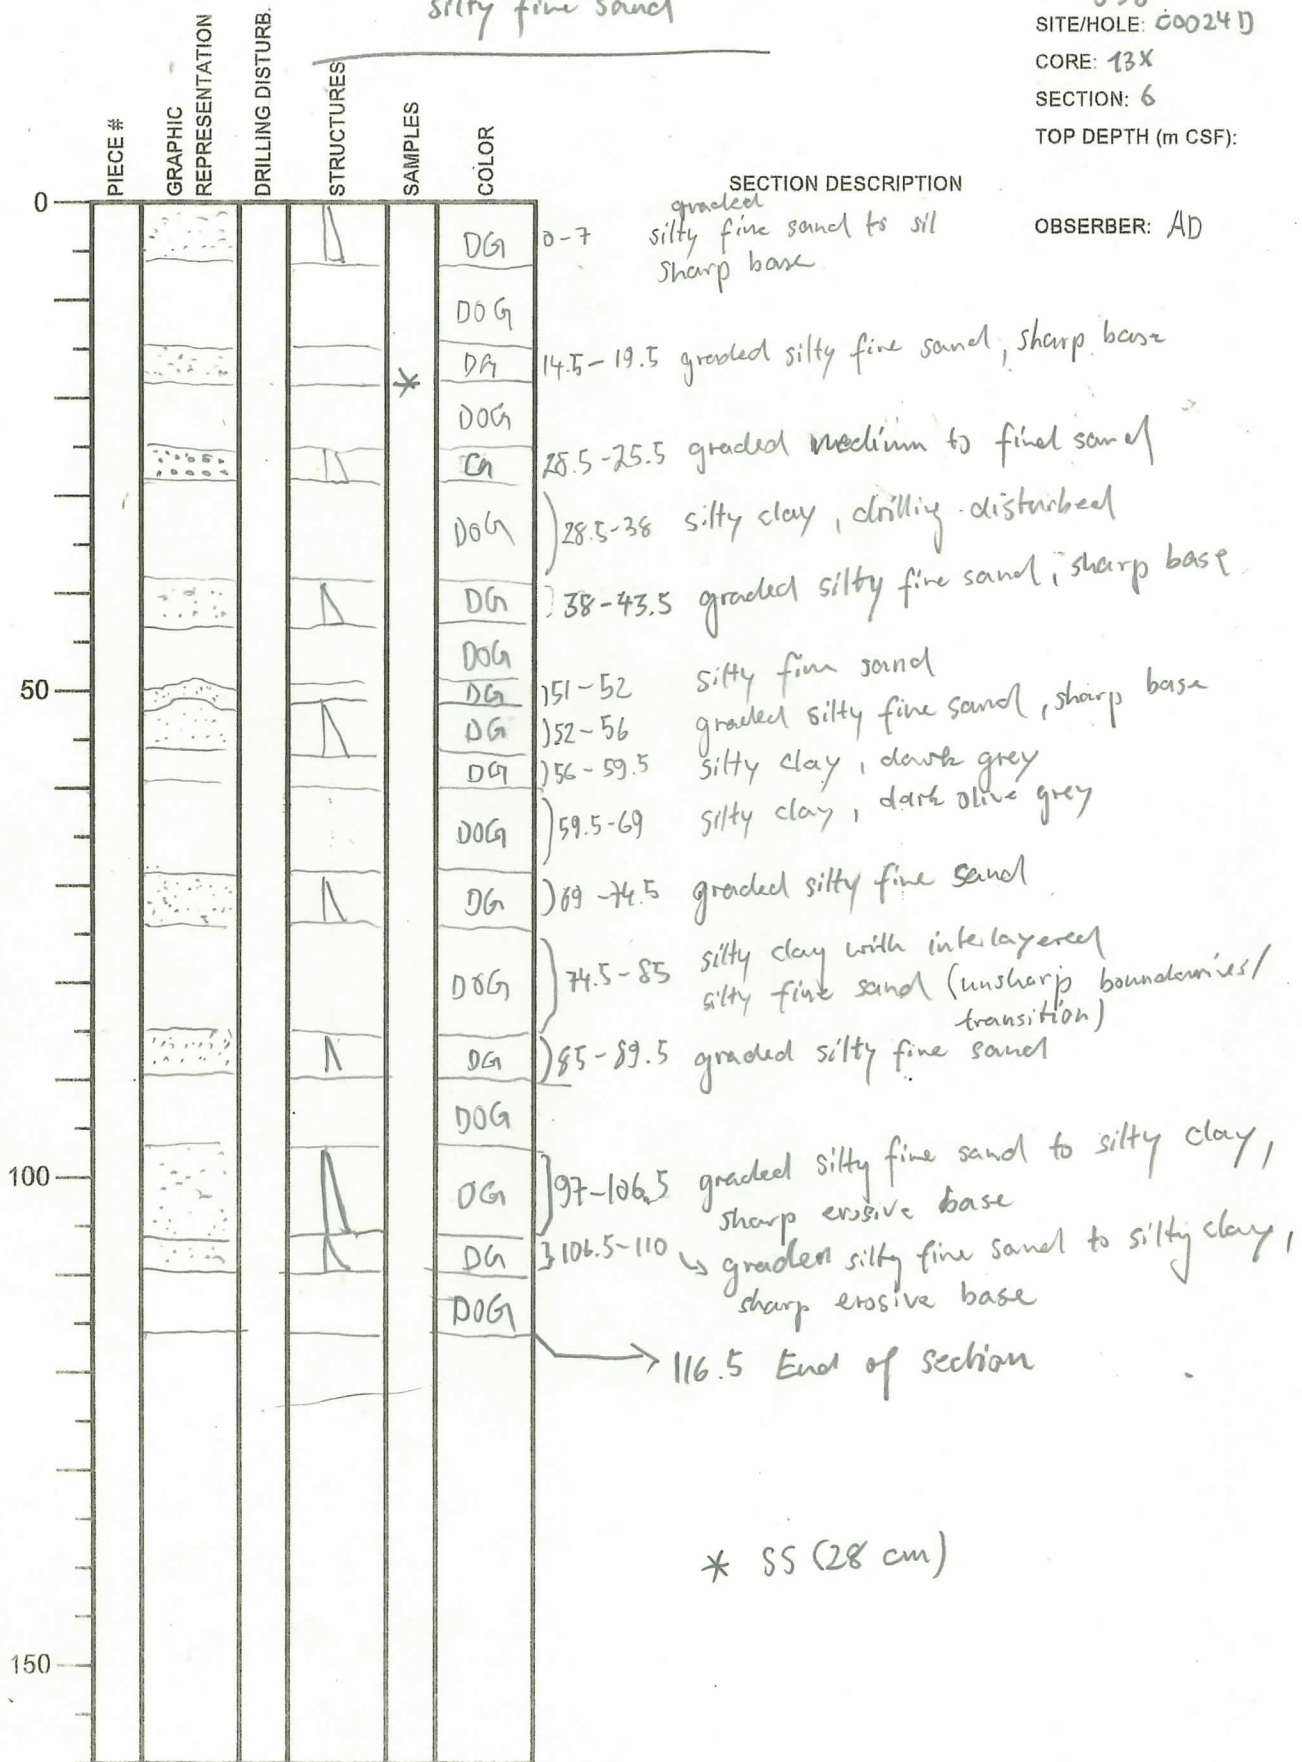 silty fine sand
SITE/HOLE: C0024D
CORE: 13X
SECTION: 6
TOP DEPTH (m CSF):
PIECE #
GRAPHIC
REPRESENTATION
DRILLING DISTURB.
STRUCTURES
SAMPLES
COLOR
SECTION DESCRIPTION
OBSERBER: AD
0
graded
DG 0-7 silty fine sand to sil
sharp base
DOG
DG 14.5-19.5 graded silty fine sand, sharp base
*
DOG
28.5-25.5 graded medium to fine sand
DOG 28.5-38 silty clay, drilling disturbed
DG 38-43.5 graded silty fine sand, sharp base
DOG
50
DG 51-52 silty fine sand
DG 52-56 graded silty fine sand, sharp base
DG 56-59.5 silty clay, dark grey
DOG 59.5-69 silty clay, dark olive grey
DG 69-74.5 graded silty fine sand
DOG 74.5-85 silty clay with interlayered
silty fine sand (unsharp boundaries/
transition)
DG 85-89.5 graded silty fine sand
DOG
100
DG 97-106.5 graded silty fine sand to silty clay,
sharp erosive base
DG 106.5-110 graded silty fine sand to silty clay,
sharp erosive base
DOG
116.5 End of section
* SS (28 cm)
150